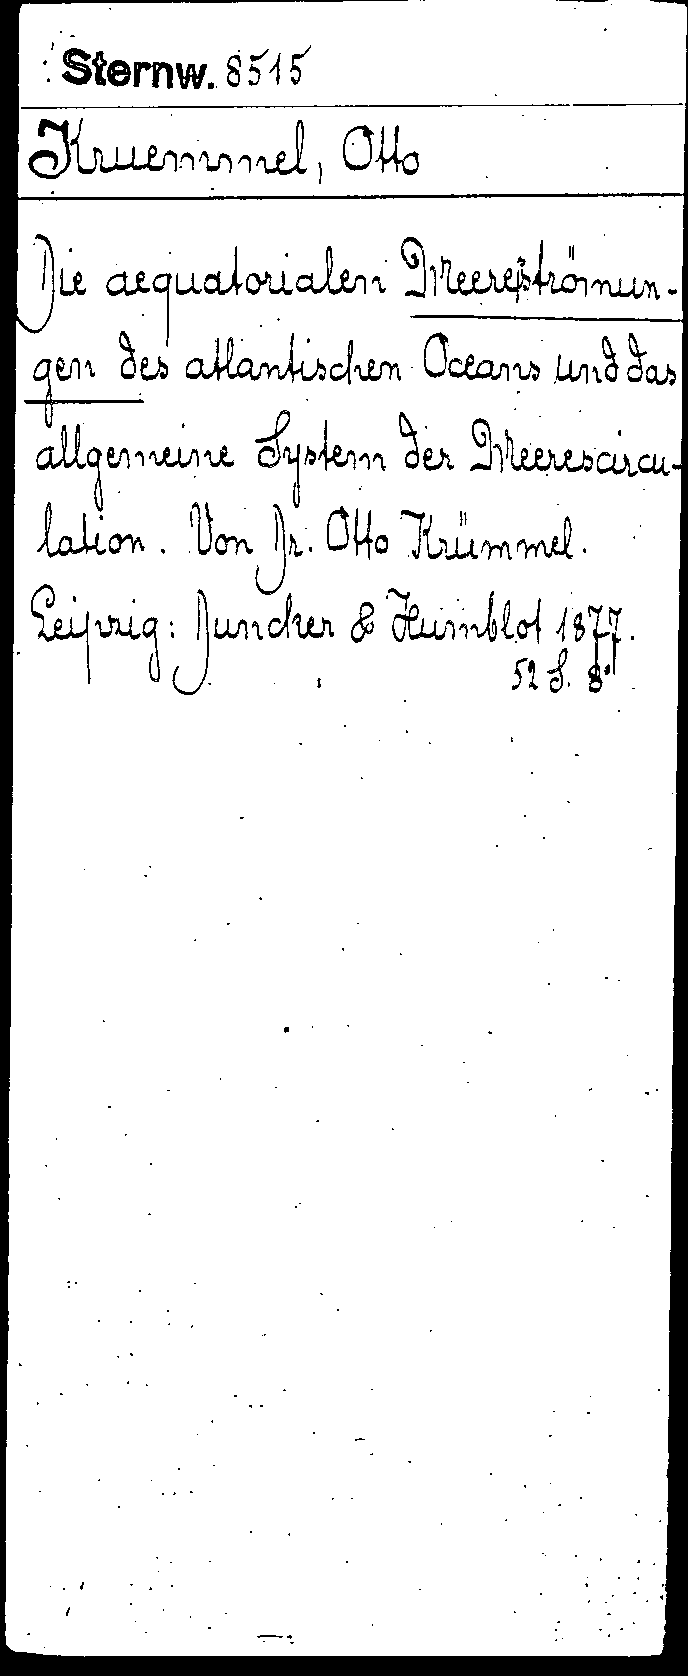 Sternw. 8515
Kruemmel, Otto
Die aequatorialen Meeresströmun-
gen des atlantischen Oceans und das
allgemeine System der Meerescircu-
lation. Von Dr. Otto Krümmel.
Leipzig: Duncker & Humblot 1877.
52 S. 8°